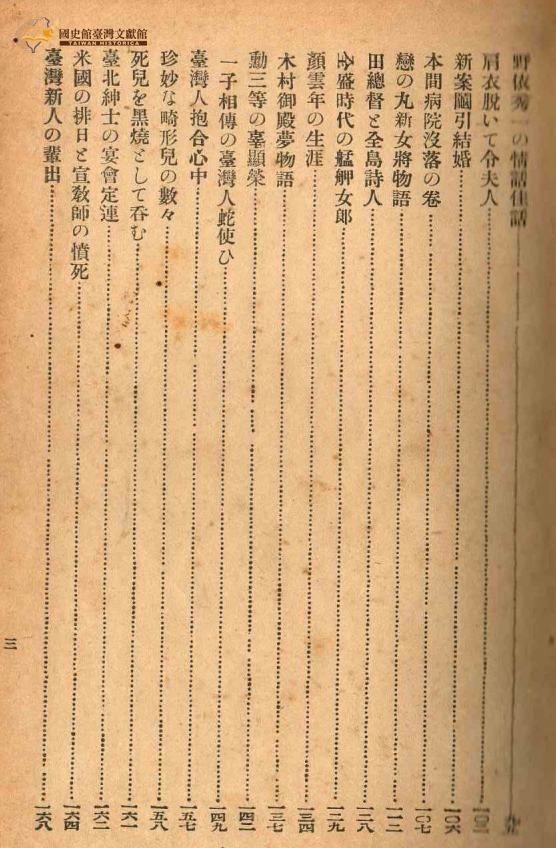 國史館臺灣文獻館
TAIWAN HISTORICA
野依秀一の情話佳話
肩衣脫いで令夫人……一〇二
新案圖引結婚……一〇六
本間病院沒落の卷……一〇七
戀の丸新女將物語……一一二
田總督と全島詩人……一二八
全盛時代の艋舺女郎……一二九
顏雲年の生涯……一三四
木村御殿夢物語……一三七
勳三等の辜顯榮……一四二
一子相傳の臺灣人蛇使ひ……一四九
臺灣人抱合心中……一五七
珍妙な畸形兒の數々……一五八
死兒を黑燒として呑む……一六一
臺北紳士の宴會定連……一六二
米國の排日と宣敎師の憤死……一六四
臺灣新人の輩出……一六八
三